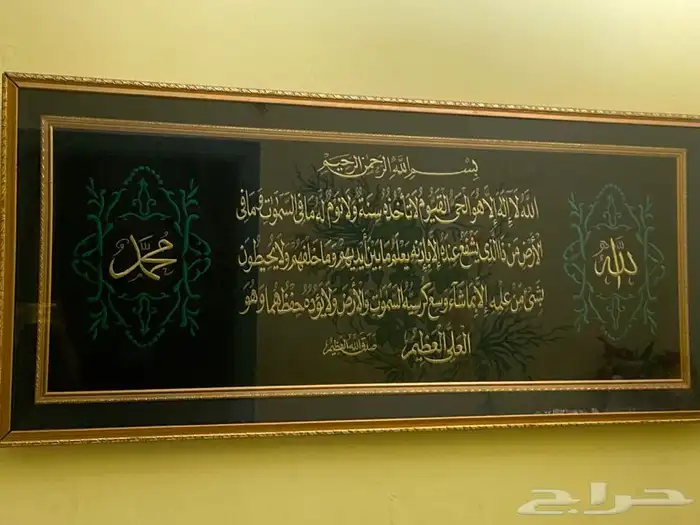 بسم الله الرحمن الرحيم
الله لا إله إلا هو الحي القيوم لا تأخذه سنة ولا نوم له ما في السموت وما في
الأرض من ذا الذي يشفع عنده إلا بإذنه يعلم ما بين أيديهم وما خلفهم ولا يحيطون
بشيء من علمه إلا بما شاء وسع كرسيه السموت والأرض ولا يؤده حفظهما وهو
العلي العظيم صدق الله العظيم
الله
محمد
حراج